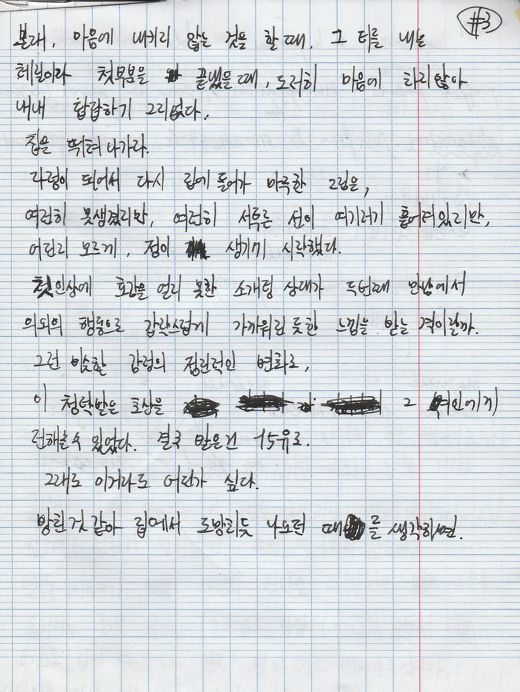 #3
본래, 마음에 내키지 않는 것을 할 때, 그 티를 내는
체질이라 첫부분을 끝냈을 때, 도저히 마음에 차지 않아
내내 답답하기 그지없다.
집을 뛰쳐나가라.
다시 들어가 마주한 그림은,
여전히 못생겼지만, 여전히 서투른 선이 여기저기 흩어져있지만,
어딘지 모르게, 정이 생기기 시작했다.
첫인상에 호감을 얻지 못한 소개팅 상대가 두번째 만남에서
의외의 행동으로 갑작스럽게 가까워진 듯한 느낌을 받는 격이랄까.
그런 비슷한 감정의 점진적인 변화로,
이 청탁받은 초상을 그 여인에게
전해줄 수 있었다. 결국 받은건 15유로.
그래도 이거라도 어딘가 싶다.
망친것 같아 펍에서 도망치듯 나오던 때를 생각하면.